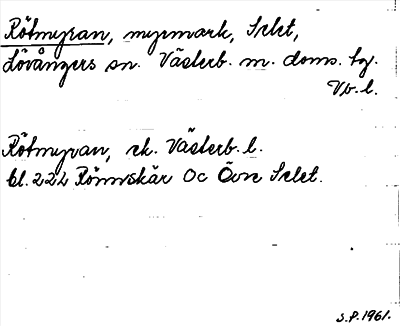 Rötmyran, myrmark, Selet,
Lövångers sn. Västerb. m. doms. tg.
Vb. l.
Rötmyran, ek. Västerb. l.
bl. 222 Rönnskär Öc Övre Selet.
S.P. 1961.